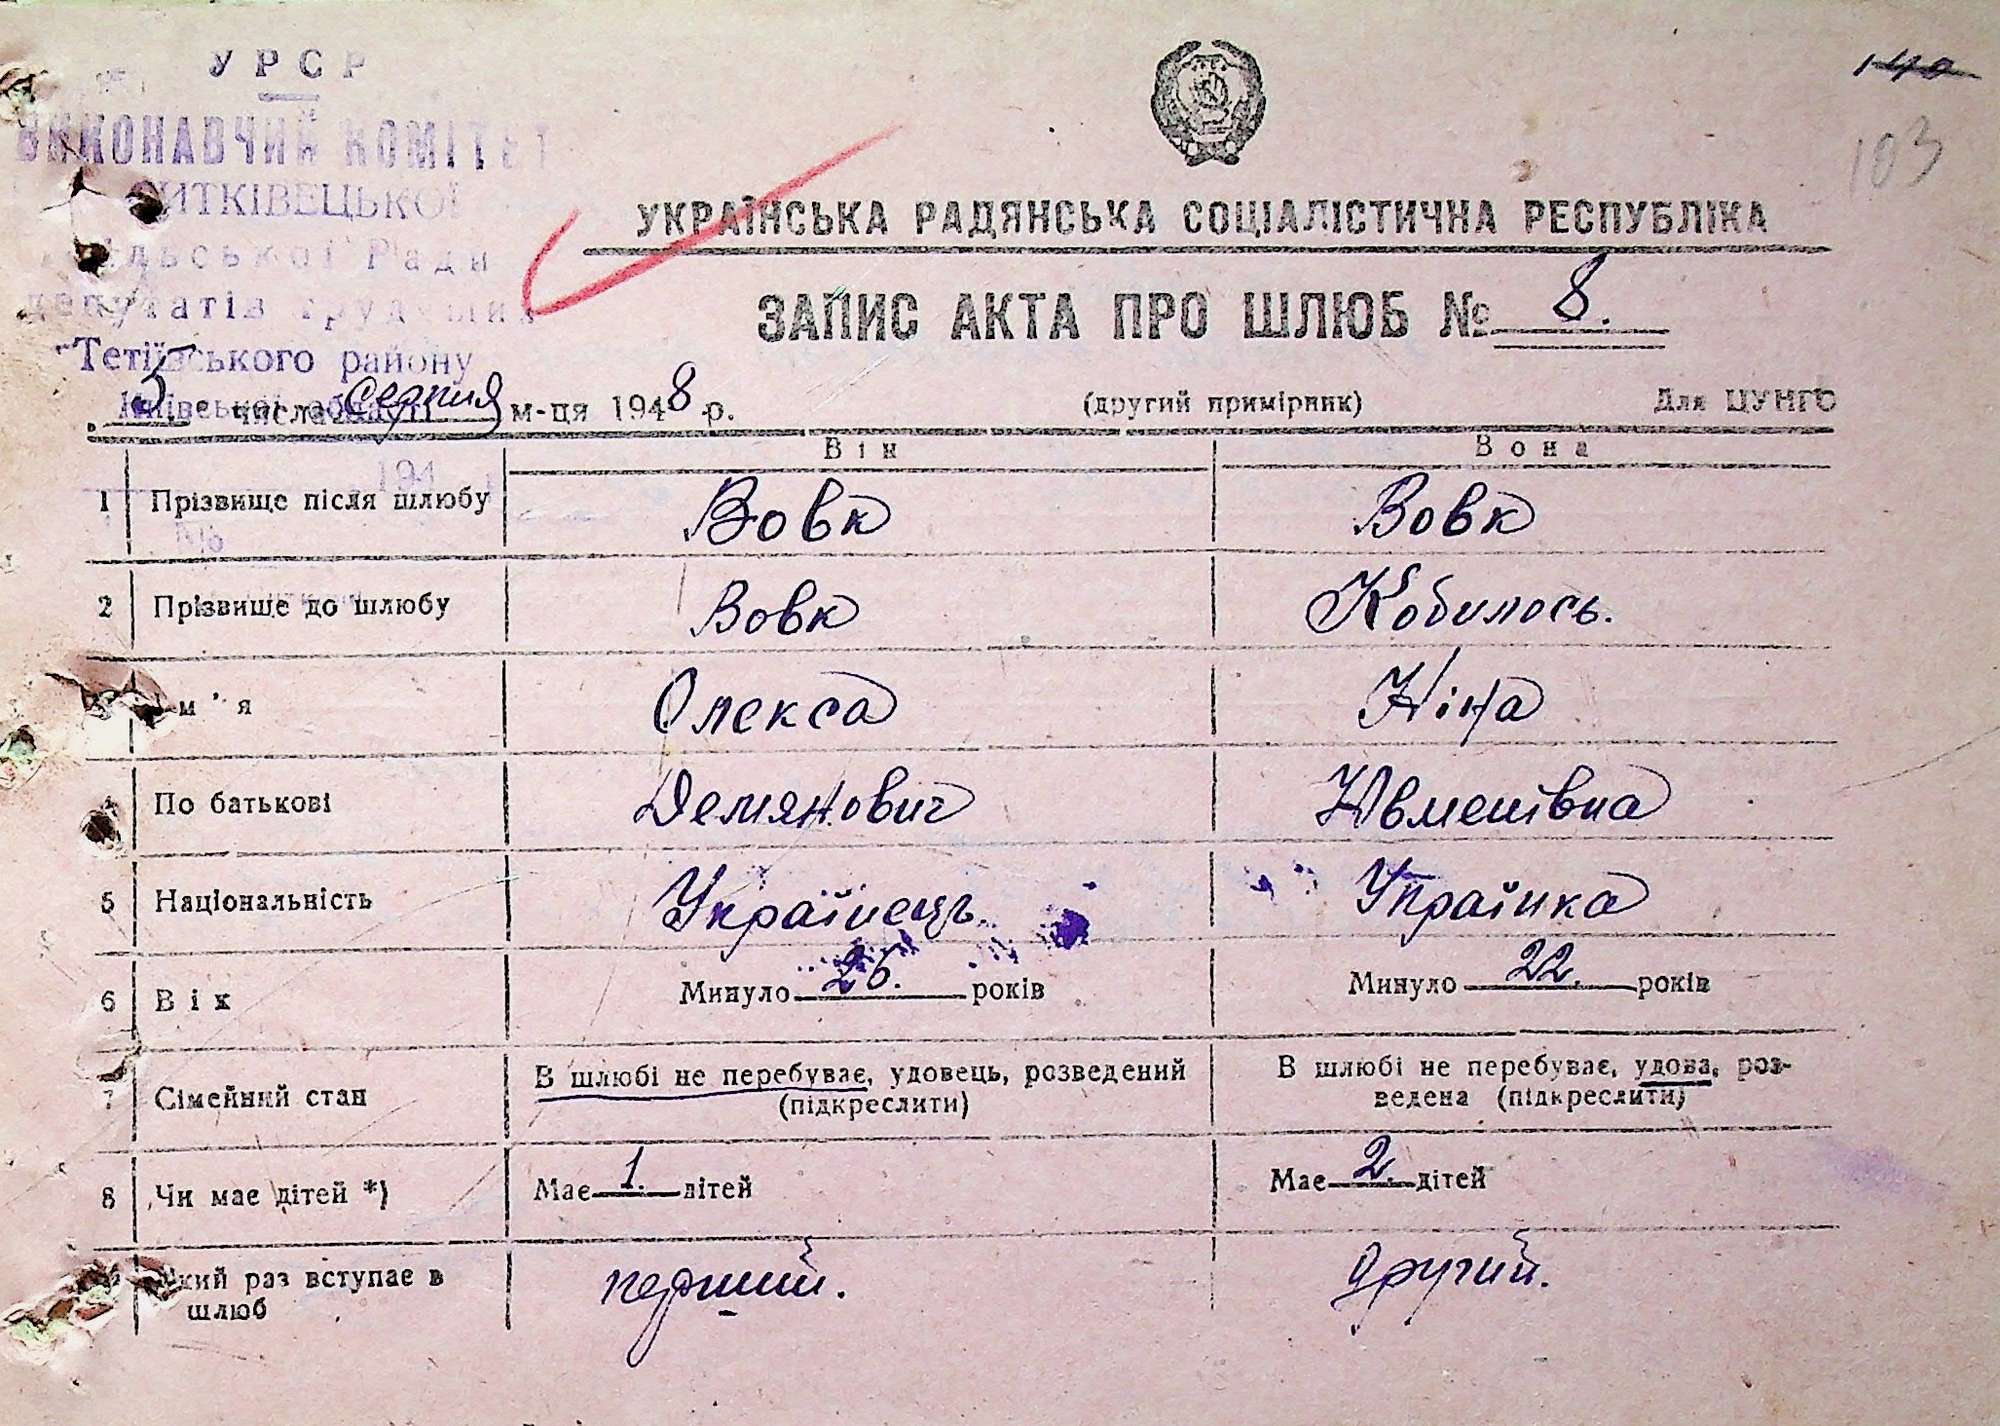 УРСР
ВИКОНАВЧИЙ КОМІТЕТ
СИТКІВЕЦЬКОЇ
сільської Ради
депутатів трудящих
Тетіївського району
Київської області
194
№
140
103
УКРАЇНСЬКА РАДЯНСЬКА СОЦІАЛІСТИЧНА РЕСПУБЛІКА
ЗАПИС АКТА ПРО ШЛЮБ № 8.
5 числа серпня м-ця 1948 р. (другий примірник) Для ЦУНГО
Він Вона
1 Прізвище після шлюбу Вовк Вовк
2 Прізвище до шлюбу Вовк Кобилось.
Ім'я Олекса Ніна
4 По батькові Демянович
5 Національність Українець. Українка
6 Вік Минуло 26. років Минуло 22. років
7 Сімейний стан В шлюбі не перебуває, удовець, розведений (підкреслити) В шлюбі не перебуває, удова, роз-
ведена (підкреслити)
8 Чи має дітей *) Має 1. дітей Має 2. дітей
9 Який раз вступає в перший. другий.
шлюб